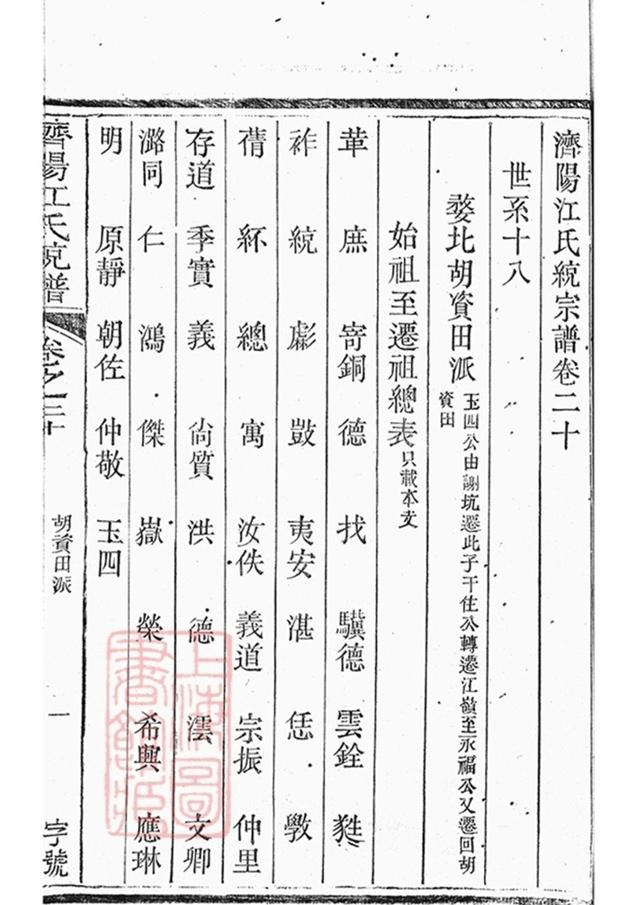 濟陽江氏統宗譜卷二十
世系十八
婺北胡資田派 玉四公由謝坑遷此子干住公轉遷江嶺至永福公又遷回胡
資田
始祖至遷祖總表 只載本支
革 庶 寄銅 德 找 驥德 雲銓 蕤
祚 統 彪 鼓 夷安 湛 恁 斆
蒨 紑 總 寓 汝佚 義道 宗振 仲里
存道 季實 義 尚質 洪 德 澐 文卿
潞同 仁 鴻 傑 嶽 榮 希興 應琳
明 原靜 朝佐 仲敬 玉四
濟陽江氏統譜 卷之二十 胡資田派 一 字號
上海圖書館藏